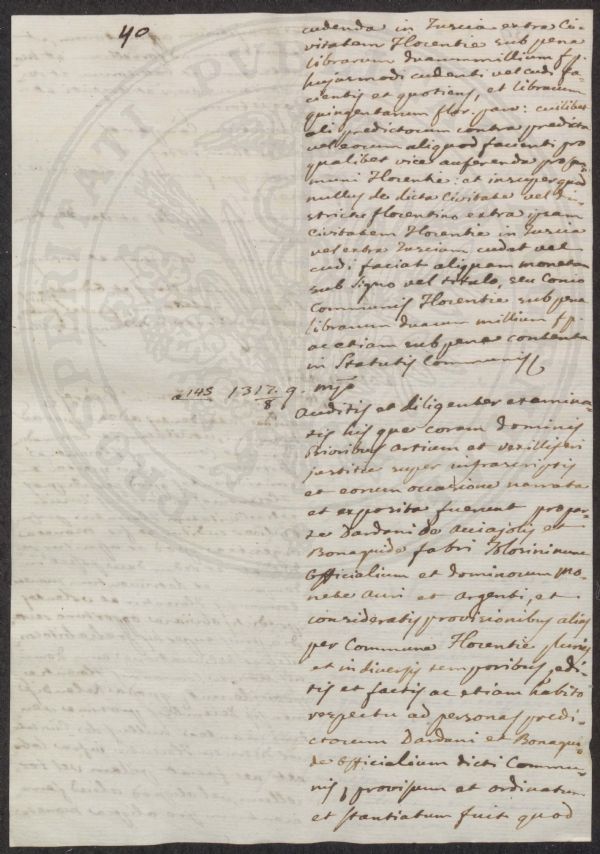 40
cudenda in Tuscia extra Ci-
vitatem Florentie sub pena
librarum duarummillium fp.
hujusmodi cudenti vel cudi fa-
cientis et quotiens, et librarum
quingentarum flor. parv: cuilibet
alii predictorum contra predicta
vel eorum aliquod facienti pro
qualibet vice auferenda pro Com-
muni Florentie: et insuper quod
nullus de dicta Civitate vel Di-
strictu florentino extra ipsam
Civitatem Florentie in Tuscia
vel extra Tusciam cudat vel
cudi faciat aliquam monetam
sub signo vel titulo, seu Conio
Communis Florentie sub pena
librarum duarum millium f.p.
ac etiam sub pena contenta
in Statutis Communis
a 145 1317. 9. mze
8
Auditis et diligenter examina-
tis his que coram dominis
Prioribus Artium et vexillifero
justitie super infrascriptis
et eorum occasione narrata
et exposita fuerunt pro par-
te Dardani de Acciajolis et
Bonaguide fabri Florinorum
Officialium et dominorum Mo-
nete Auri et Argenti, et
consideratis provisionibus alias
per Commune Florentie pluries
et in diversis temporibus edi-
tis et factis ac etiam habito
respectu ad personas predi-
ctorum Dardani et Bonagui-
de Officialium dicti Commu-
nis, provisum et ordinatum
et stantiatum fuit quod
PROSPERITATI PUBL